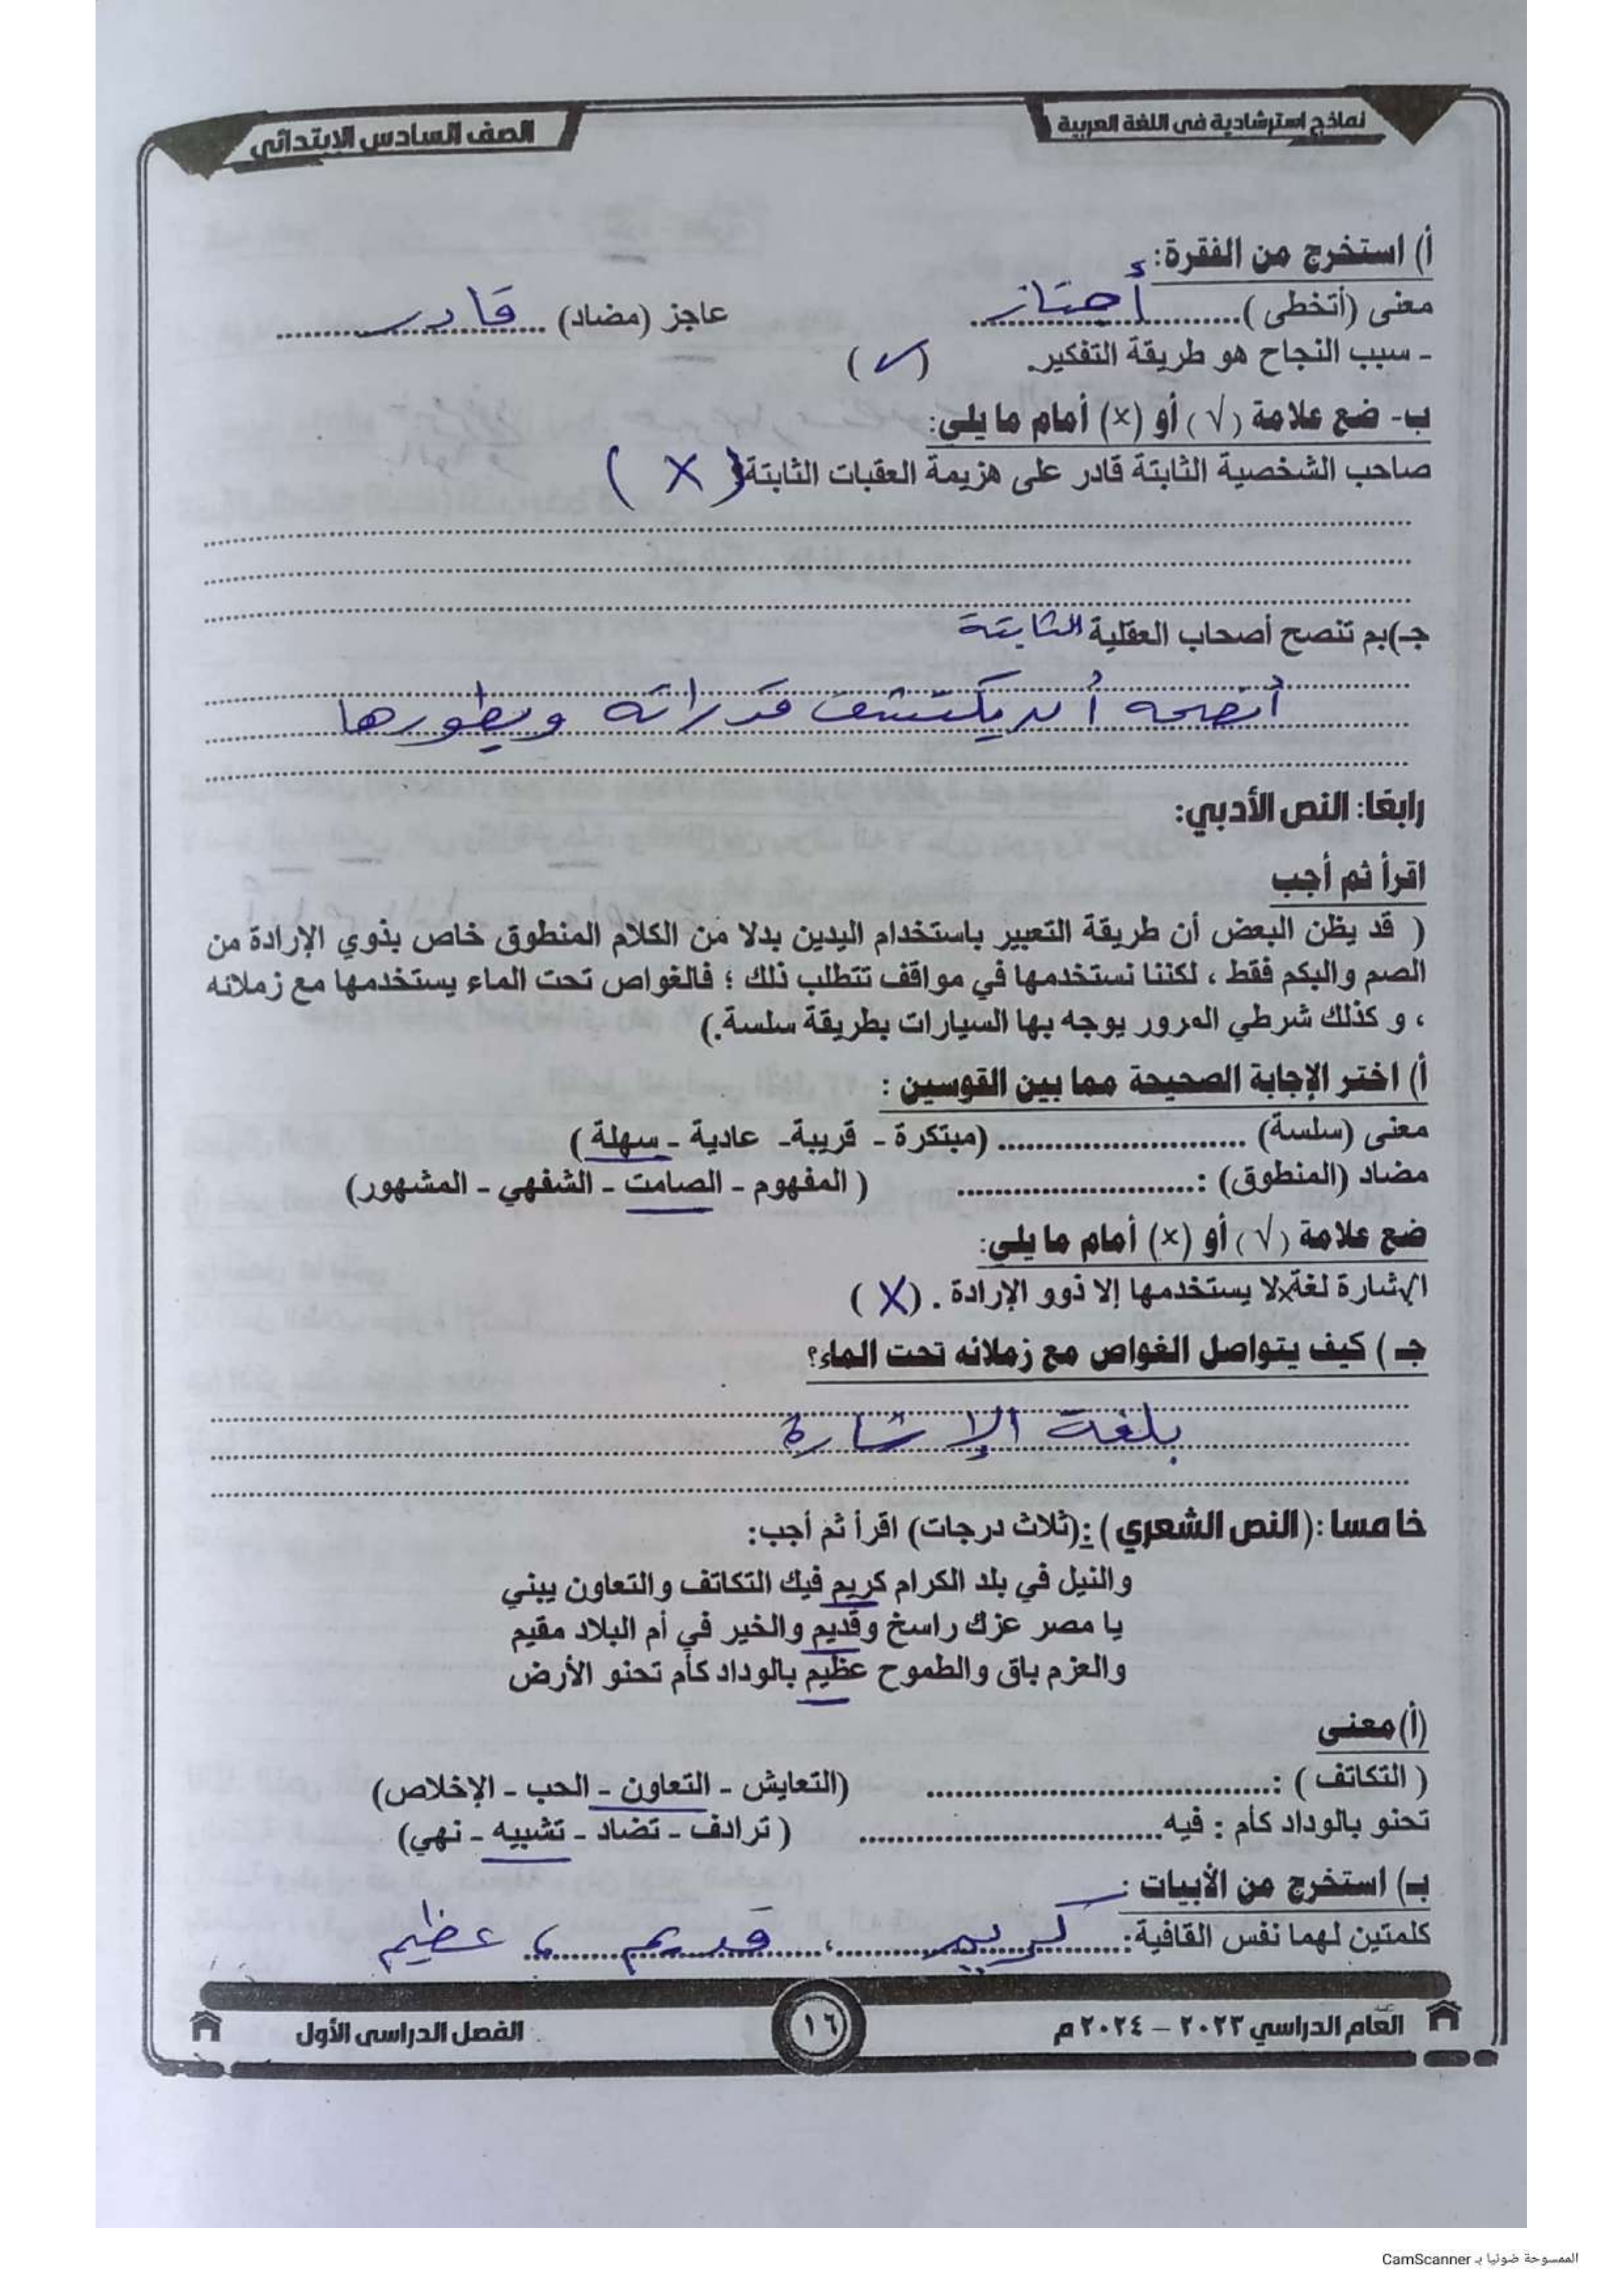 نماذج استرشادية في اللغة العربية
الصف السادس الابتدائي
أ) استخرج من الفقرة:
معنى (أتخطى )............ أجتاز عاجز (مضاد) ............ قادر
- سبب النجاح هو طريقة التفكير. (✓)
ب- ضع علامة (√) أو (×) أمام ما يلي:
صاحب الشخصية الثابتة قادر على هزيمة العقبات الثابتة ( X )
جـ)بم تنصح أصحاب العقلية الثابتة
أنصحه أن يكتشف قدراته ويطورها
رابعًا: النص الأدبي:
اقرأ ثم أجب
( قد يظن البعض أن طريقة التعبير باستخدام اليدين بدلا من الكلام المنطوق خاص بذوي الإرادة من
الصم والبكم فقط ، لكننا نستخدمها في مواقف تتطلب ذلك ؛ فالغواص تحت الماء يستخدمها مع زملائه
، و كذلك شرطي المرور يوجه بها السيارات بطريقة سلسة.)
أ) اختر الإجابة الصحيحة مما بين القوسين :
معنى (سلسة) ............ (مبتكرة - قريبة- عادية - سهلة )
مضاد (المنطوق) :............ ( المفهوم - الصامت - الشفهي - المشهور)
ضع علامة (√) أو (×) أمام ما يلي:
الإشارة لغة لا يستخدمها إلا ذوو الإرادة . (X )
جـ ) كيف يتواصل الغواص مع زملائه تحت الماء؟
بلغة الإشارة
خامسا :(النص الشعري ) :(ثلاث درجات) اقرأ ثم أجب:
والنيل في بلد الكرام كريم فيك التكاتف والتعاون يبني
يا مصر عزك راسخ وقديم والخير في أم البلاد مقيم
والعزم باق والطموح عظيم بالوداد كأم تحنو الأرض
(أ)معنى
( التكاتف ) :............ (التعايش - التعاون - الحب - الإخلاص)
تحنو بالوداد كأم : فيه............ ( ترادف - تضاد - تشبيه - نهي)
بـ) استخرج من الأبيات :
كلمتين لهما نفس القافية:...... كريم ......،...... قديم ، عظيم
العام الدراسي ٢٠٢٣ – ٢٠٢٤ م
١٦
الفصل الدراسي الأول
الممسوحة ضوئيا بـ CamScanner